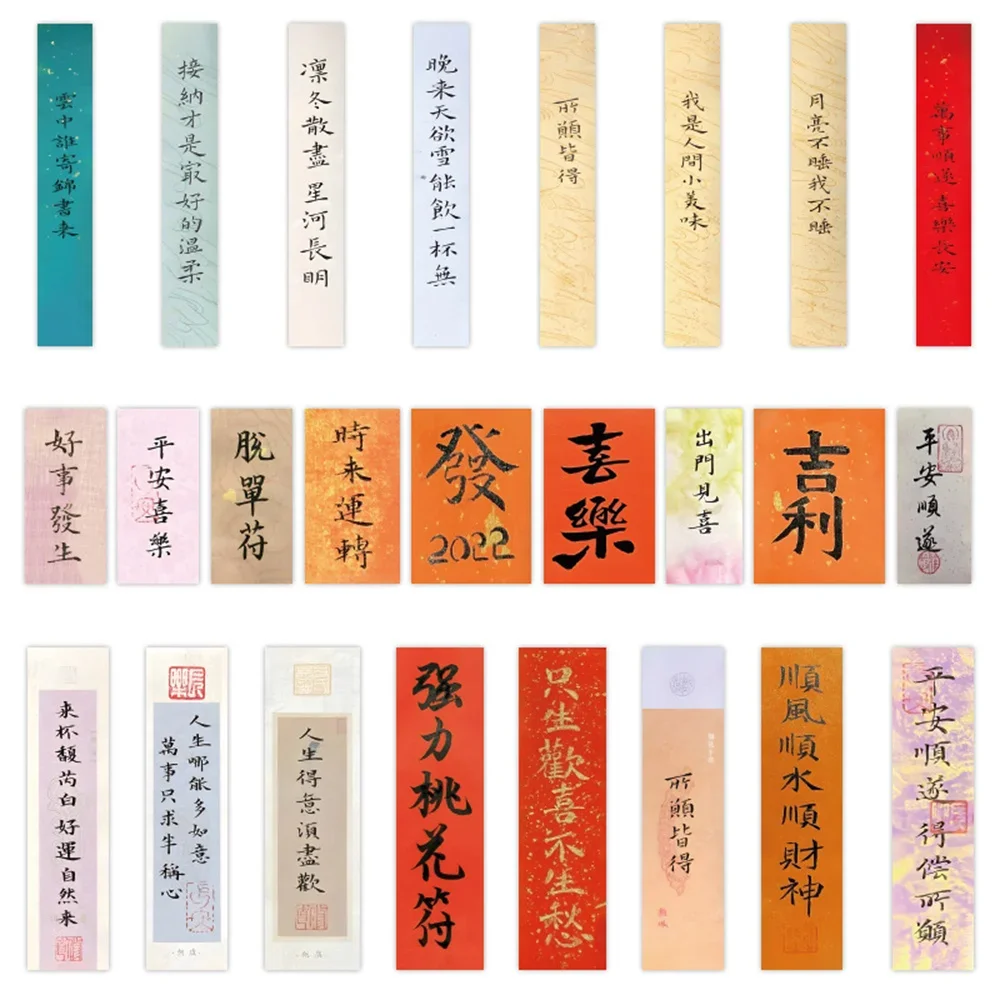 雲中誰寄錦書来
接納才是最好的溫柔
凛冬散盡星河長明
晚来天欲雪能飲一杯無
所願皆得
我是人間小美味
月亮不睡我不睡
萬事順遂喜樂長安
好事發生
平安喜樂
脫單符
時来運轉
發
2022
喜樂
出門見喜
吉利
平安順遂
来杯馥芮白好運自然来
人生哪能多如意
萬事只求半稱心
人生得意須盡歡
强力桃花符
只生歡喜不生愁
所願皆得
順風順水順財神
平安順遂得偿所願